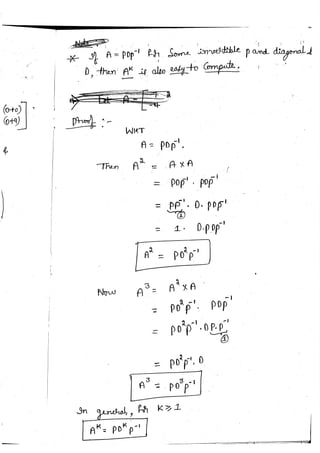 Note :
* If A = PDP⁻¹ for Some invertible P and diagonal
D, then Aᴷ is also easy to Compute.
(0+0)
(0+9)
Proof :-
WKT
A = PDP⁻¹.
Then A² = A x A
= PDP⁻¹ . PDP⁻¹
= PP⁻¹ . D. PDP⁻¹
①
= 1. D.PDP⁻¹
A² = PD²P⁻¹
Now A³ = A² x A
= PD²P⁻¹. PDP⁻¹
= PD²P⁻¹.DP.P⁻¹
①
= PD²P⁻¹. D
A³ = PD³P⁻¹
In general, for K ≥ 1
Aᴷ = PDᴷP⁻¹